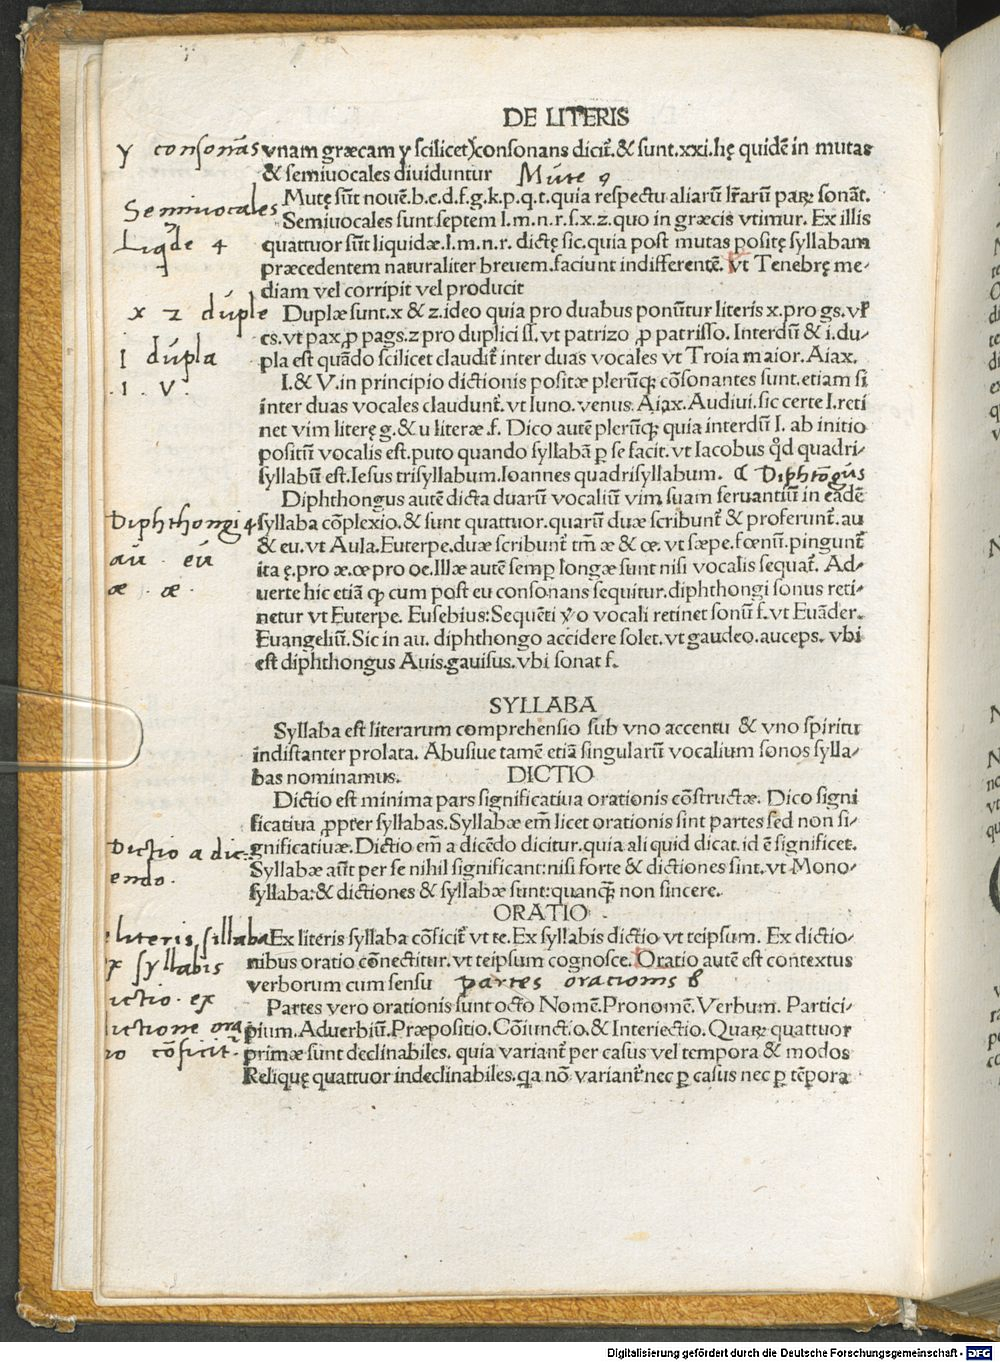 DE LITERIS
y consonãs
vnam græcam y scilicet) consonans dicit᷑. & sunt. xxi. hę quidẽ in mutas
& semiuocales diuiduntur
Mute 9
Mutę sũt nouẽ. b. c. d. f. g. k. p. q. t. quia respectu aliarũ lr̃arũ parꝝ sonãt.
Semiuocales
Semiuocales sunt septem l. m. n. r. s. x. z. quo in græcis vtimur. Ex illis
Liqde 4
quattuor sũt liquidæ. l. m. n. r. dictę sic, quia post mutas positę syllabam
præcedentem naturaliter breuem. faciunt indifferentẽ. Vt Tenebrę me⸗
diam vel corripit vel producit
x z duple
Duplæ sunt. x & z. ideo quia pro duabus ponũtur literis x. pro gs. vl̓
cs. vt pax, ꝓ pags. z pro duplici ss. vt patrizo ꝓ patrisso. Interdũ & i. du⸗
I dupla
pla est quãdo scilicet claudit᷑ inter duas vocales vt Troia maior. Aiax.
. I . V .
I. & V. in principio dictionis positæ plerũqꝫ cõsonantes sunt. etiam si
inter duas vocales claudunt᷑. vt Iuno. venus. Aiax. Audiui. sic certe I. reti
net vim literę g. & u literæ. f. Dico autẽ plerũqꝫ quia interdũ I. ab initio
positũ vocalis est. puto quando syllabã ꝑ se facit. vt Iacobus qd̓ quadri⸗
syllabũ est. Iesus trisyllabum. Ioannes quadrisyllabum.
Diphtõgus
Diphthongus autẽ dicta duarũ vocaliũ vim suam seruantiũ in eadẽ
Diphthongi 4
syllaba cõplexio. & sunt quattuor. quarũ duæ scribunt᷑ & proferunt᷑. au
au . eu
& eu. vt Aula. Euterpe. duæ scribunt᷑ tm̃ æ & œ. vt sæpe. fœnũ. pingunt᷑
ita ę. pro æ. œ pro oe. Illæ autẽ semꝑ longæ sunt nisi vocalis sequat᷑. Ad⸗
æ . œ .
uerte hic etiã ꝙ cum post eu consonans sequitur. diphthongi sonus reti⸗
netur vt Euterpe. Eusebius: Sequẽti v̓o vocali retinet sonũ f. vt Euãder.
Euangeliũ. Sic in au. diphthongo accidere solet. vt gaudeo. auceps. vbi
est diphthongus Auis. gauisus. vbi sonat f.
SYLLABA
Syllaba est literarum comprehensio sub vno accentu & vno spiritu
indistanter prolata. Abusiue tamẽ etiã singularũ vocalium sonos sylla⸗
bas nominamus.
DICTIO
Dictio est minima pars significatiua orationis cõstructæ. Dico signi
ficatiua ꝓpter syllabas. Syllabæ em̃ licet orationis sint partes sed non si⸗
Dictio a dic⸗
gnificatiuæ. Dictio em̃ a dicẽdo dicitur. quia ali quid dicat. id ẽ significet.
endo.
Syllabæ aũt per se nihil significant: nisi forte & dictiones sint. vt Mono⸗
syllaba: & dictiones & syllabæ sunt: quanqꝫ̃ non sincere.
ORATIO
literis sillaba
Ex literis syllaba cõficit᷑ vt te. Ex syllabis dictio vt teipsum. Ex dictio⸗
syllabis
nibus oratio cõnectitur. vt teipsum cognosce. Oratio autẽ est contextus
verborum cum sensu
partes orationis 8
ictio . ex
Partes vero orationis sunt octo Nomẽ. Pronomẽ. Verbum. Partici⸗
ictione ora
pium. Aduerbiũ. Præpositio. Cõiunctio. & Interiectio. Quarꝝ quattuor
cõficit᷑.
primæ sunt declinabiles. quia variant᷑ per casus vel tempora & modos
Reliquę quattuor indeclinabiles. qa nõ variant᷑ nec ꝑ casus nec ꝑ tẽpora
Digitalisierung gefördert durch die Deutsche Forschungsgemeinschaft - DFG